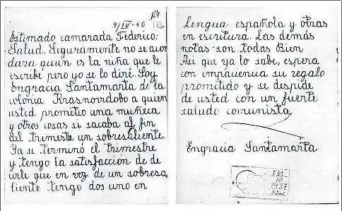 9/IV-40
Estimado camarada Federico:
Salud. Seguramente no se acor
dará quien es la niña que le
escribe pero yo se lo diré. Soy
Engracia Santamarta de la
colonia Krasnovidobo a quien
usted prometió una muñeca
y otras cosas si sacaba al fin
del trimestre un sobresaliente
Ya se terminó el trimestre
y tengo la satisfacción de de
cirle que en vez de un sobresa
liente tengo dos uno en
Lengua española y otras
en escritura. Las demás
notas son todas Bien
Así que ya lo sabe, espera
con impaciencia su regalo
prometido y se despide
de usted con un fuerte
saludo comunista,
Engracia Santamarta